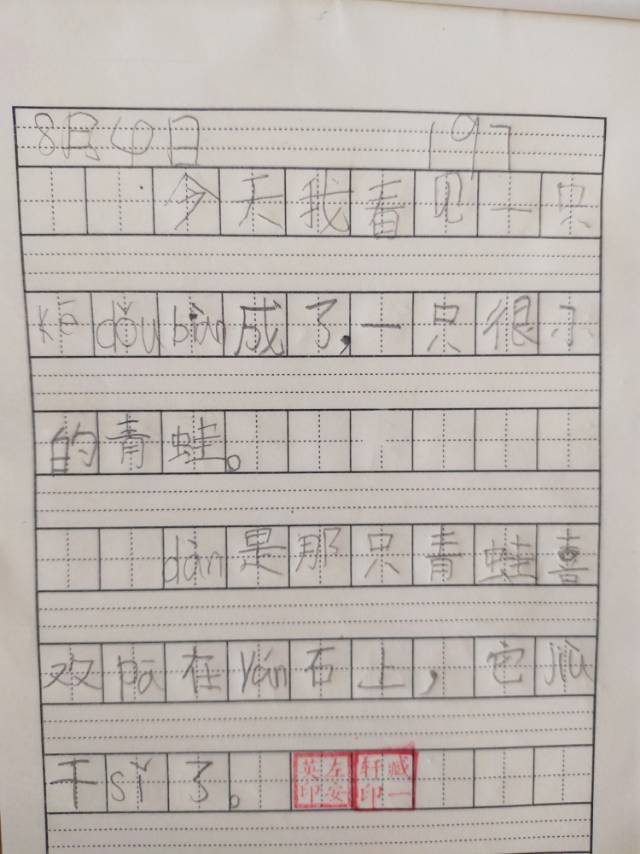 8月4日 197
今天我看见一只
kē dǒu biàn成了,一只很小
的青蛙。
dàn是那只青蛙喜
欢pā在yán石上,它jiù
干sǐ了。
英左 轩臧
印安 印一